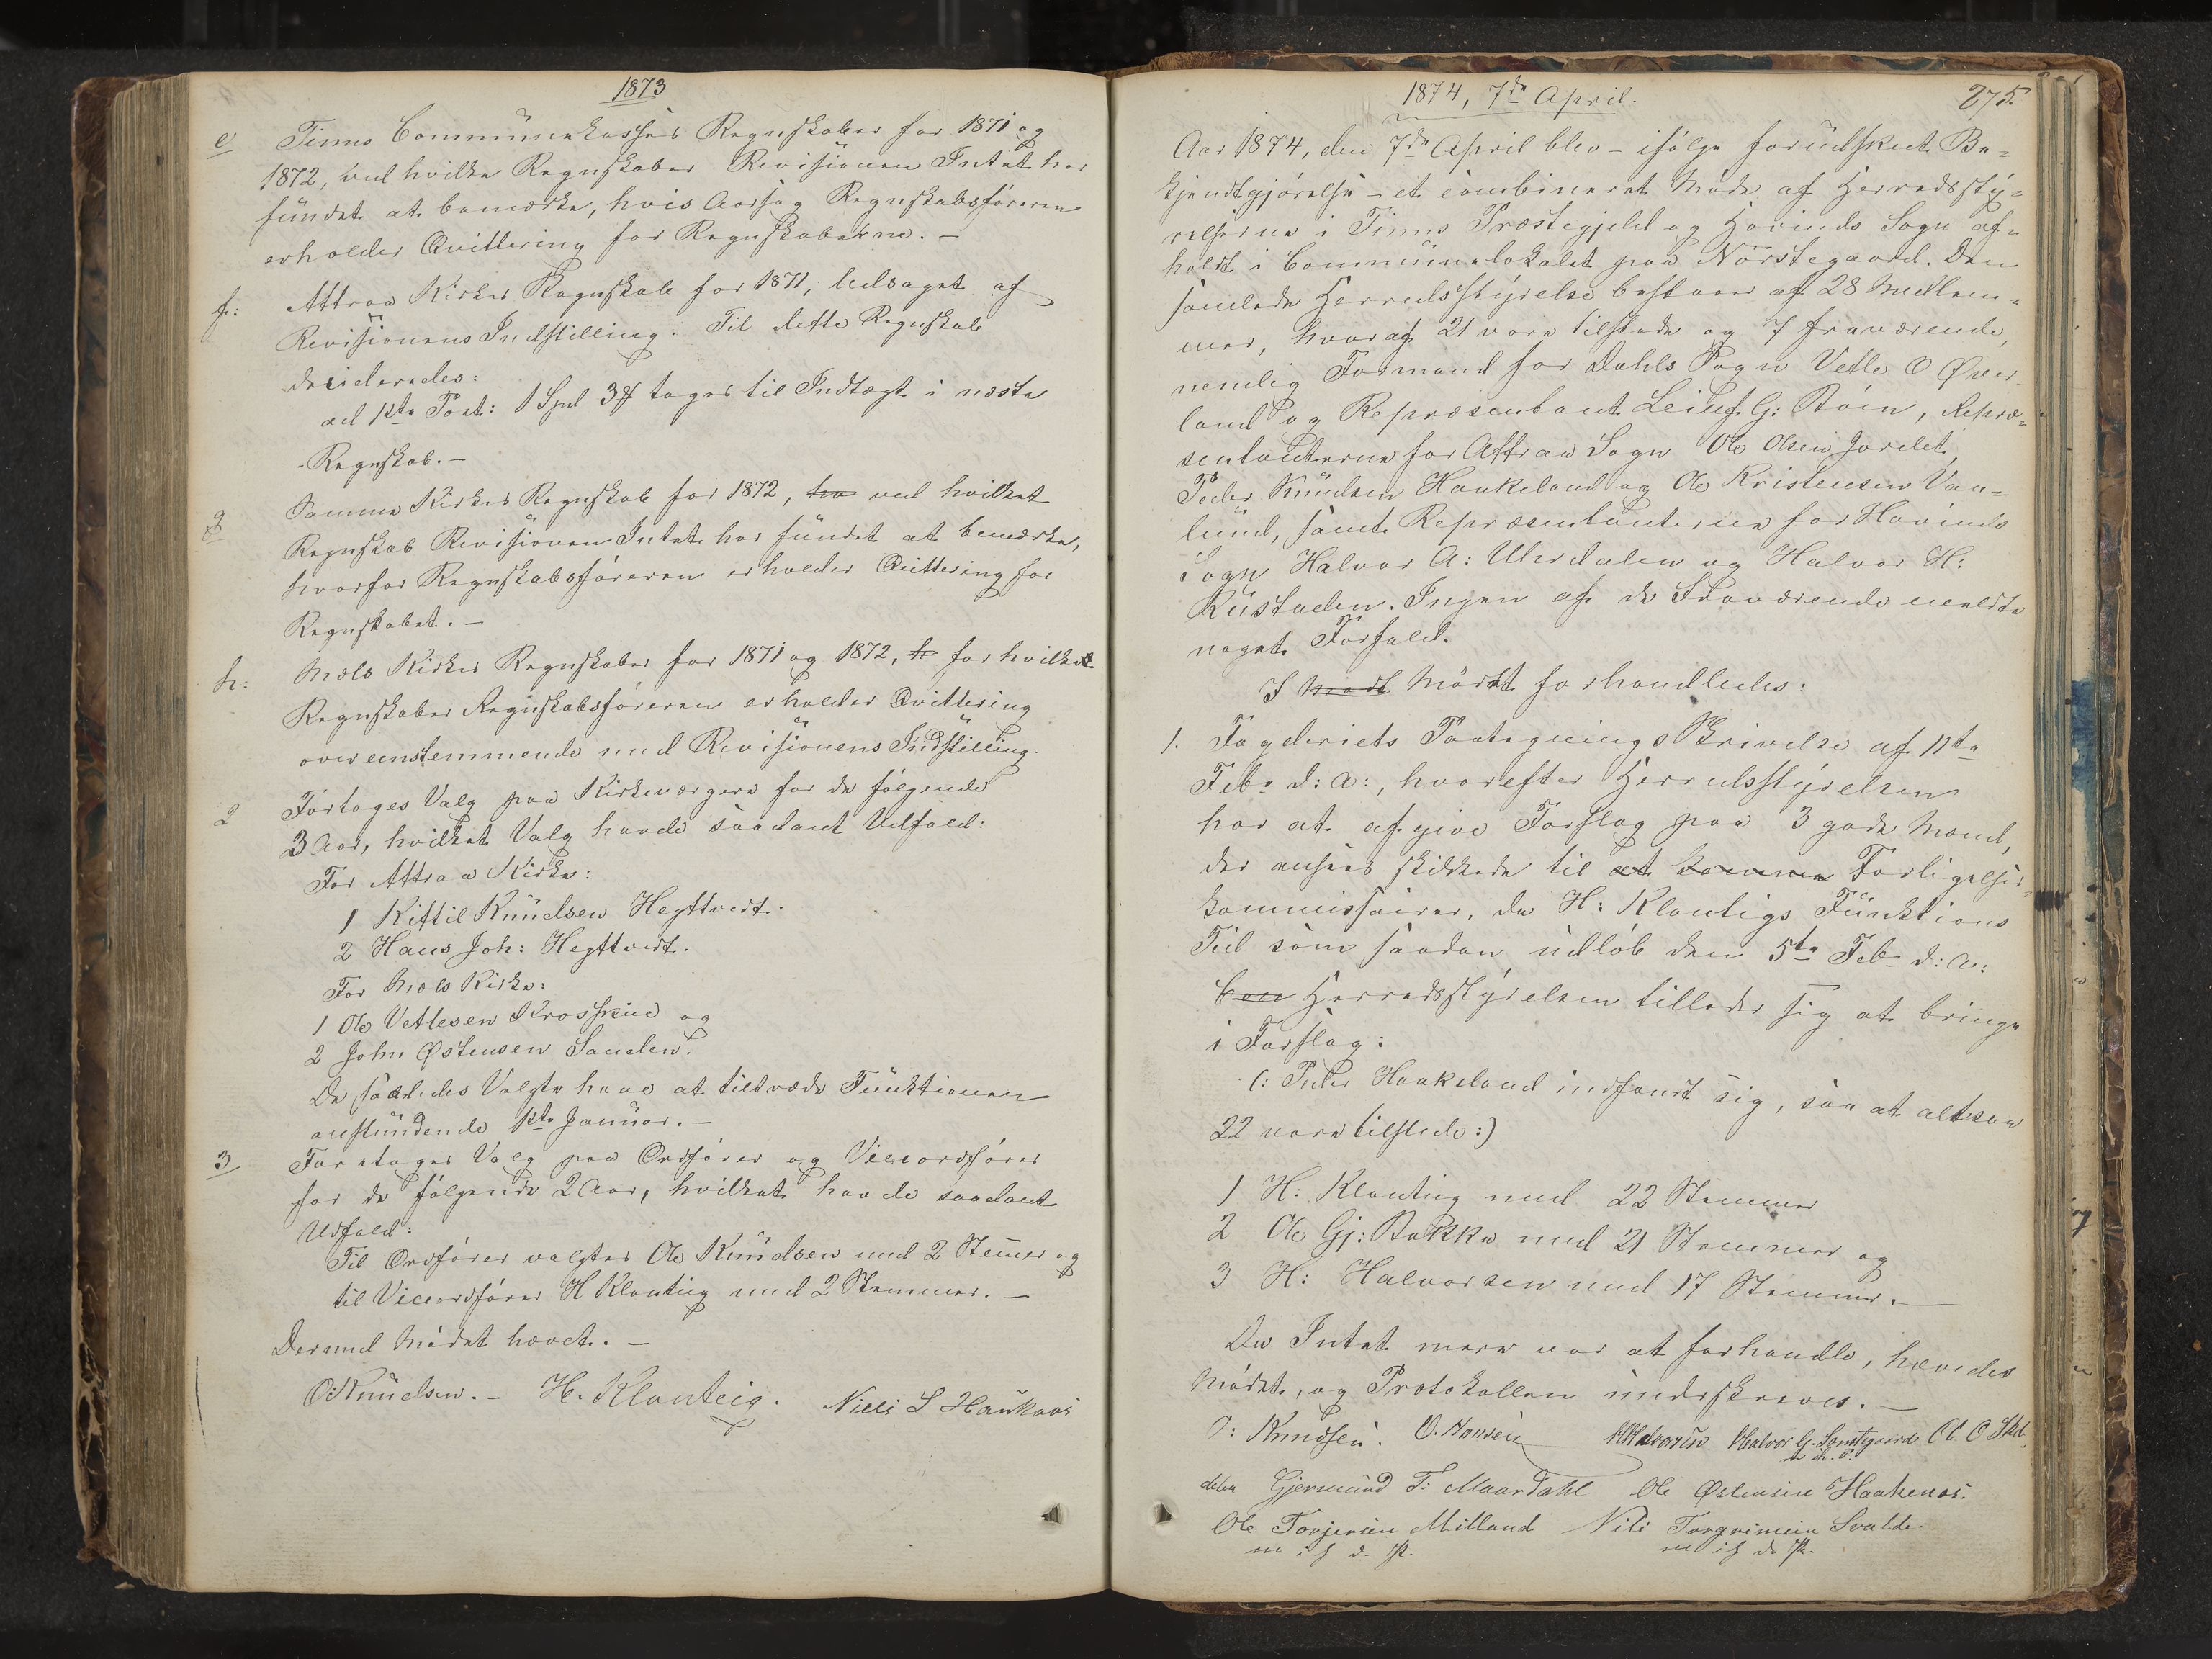 1873
e Tinns Communekasses Regnskaber for 1871 og
1872, ved hvilke Regnskaber Revisionen Intet har
fundet at bemærke, hvis Aarsag Regnskabsføreren
erholder Qvittering for Regnskaberne. –
f: Attraa Kirkes Regnskab for 1871, ledsaget af
Revisionens Indstilling. Til dette Regnskab
decideredes:
ad 1ste Post: 1 Spd 3 ß tages til Indtægt i næste
Regnskab. –
g Samme Kirkes Regnskab for 1872, ved hvilket
Regnskab Revisionen Intet har fundet at bemærke,
hvorfor Regnskabsføreren erholder Qvittering for
Regnskabet. –
h: Mæls Kirkes Regnskaber for 1871 og 1872, for hvilke
Regnskaber Regnskabsføreren erholder Qvittering
overeenstemmende med Revisionens Indstilling.
2 Fortoges Valg paa Kirkeværgere for de følgende
3 Aar, hvilket Valg havde saadant Udfald:
For Attraa Kirke:
1 Kittil Knudsen Hegtveit.
2 Hans Joh: Hegtveit.
For Mæls Kirke:
1 Ole Vetlesen Krosshue og
2 John Østensen Sanden.
De saaledes Valgte have at tiltræde Funktionen
anstundende 1ste Januar. –
3 Foretoges Valg paa Ordfører og Viceordfører
for de følgende 2 Aar, hvilket havde saadant
Udfald:
Til Ordfører valgtes Ole Knudsen med 2 Stemer og
til Viceordfører H Klonteig med 2 Stemmer. –
Dermed Mødet hævet. –
O Knudsen. – H. Klonteig. Nills S Haukaas
1874, 7de April.
275.
Aar 1874, den 7de April blev – ifølge forudskeet Be=
kjendtgjørelse – et combineret Møde af Herredssty=
relserne i Tinns Præstegjeld og Hovinds Sogn af=
holdt i Communelokalet paa Nørstegaard. Den
samlede Herredsstyrelse bestaaer af 28 Medlem=
mer, hvoraf 21 vare tilstede og 7 fraværende,
nemlig Formand for Dahls Sogn Vetle O Øver-
land og Repræsentant Leiuf G: Bøen, Repræ=
sentanterne for Attraa Sogn Ole Olsen Jordet,
Peder Knudsen Haukeland og Ole Kristensen Vaa=
lund, samt Repræsentanterne for Hovinds
Sogn Halvor A: Uhrdalen og Halvor H:
Rustaden. Ingen af de Fraværende meldte
noget Forfald.
I Mødet forhandledes:
1. Fogderiets Paategnings Skrivelse af 11te
Feb: d: A:, hvorefter Herredsstyrelsen
har at afgive Forslag paa 3 gode Mænd,
der ansees skikkede til at komme Forligelses=
kommissairer, da H: Klonteigs Funktions
Tid som saadan udløb den 5te Feb: d: A:
Herredsstyrelsen tillader sig at bringe
i Forslag:
(: Peder Haukeland indfandt sig, saa at altsaa
22 vare tilstede :)
1 H: Klonteig med 22 Stemmer
2 Ole Gj: Bakka med 21 Stemmer og
3 H: Halvorsen med 17 Stemmer. –
Da Intet mere var at forhandle, hævedes
Mødet, og Protokollen underskreves. –
O: Knudsen. O. Hansen H Halvorsen Halvor G. Sønstgaard Ol. O Skd
m. ih. P.
deba Gjermund T: Maardahl Ole Østensen Haakenaas.
Ole Torjersen Milland Nils Torgrimsen Svalde.
m i h d. P. m i h d. P.